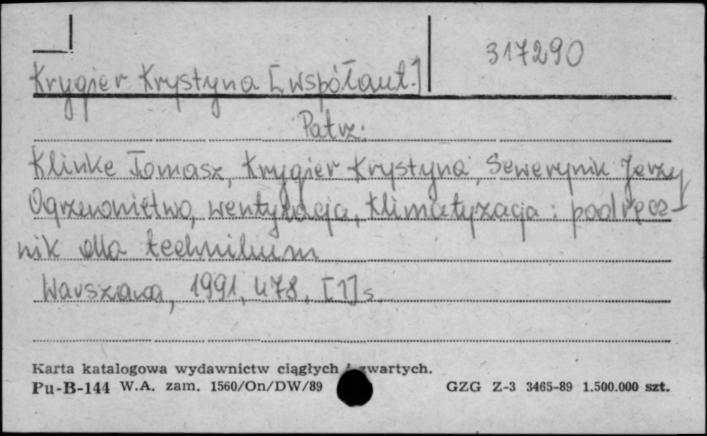 317290
Krygier Krystyna [współaut.]
Patrz:
Klinke Tomasz, Krygier Krystyna, Sewerynik Jerzy
Ogrzewnictwo, wentylacja, klimatyzacja : podręcz-
nik dla technikum
Warszawa, 1991, 478, [1] s.
Karta katalogowa wydawnictw ciągłych i zwartych.
Pu-B-144 W.A. zam. 1560/On/DW/89 GZG Z-3 3465-89 1.500.000 szt.